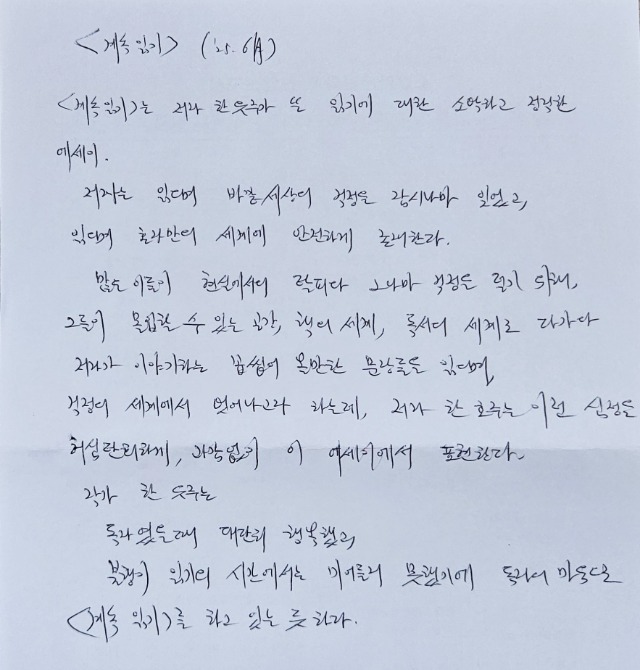 <계속 읽기> ('25. 6月)
<계속 읽기>는 저자 한 또 읽기에 대한 소박하고 정직한
에세이.
저자는 읽다며 바깥세상의 걱정을 잠시나마 잊었고,
읽다며 혼자만의 세계에 안전하게 한다.
많은 이들이 현실에서의 도피다 그나마 걱정을 덜기 위해,
그들이 몰입할 수 있는 공간, 책의 세계, 독서의 세계로 다가다
저자가 이야기하는 곱씹어 볼만한 문장들을 읽다며,
걱정의 세계에서 벗어나고자 하는데, 저자 한 는 이런 심정을
허심탄회하게, 이 에세이에서 표현한다.
작가 한 는
독자였을때 대단히 행복했고,
불행이 읽기의 시간에서는 못했기에 독자의 마음으로
<계속 읽기>를 하고 있는 듯 하다.